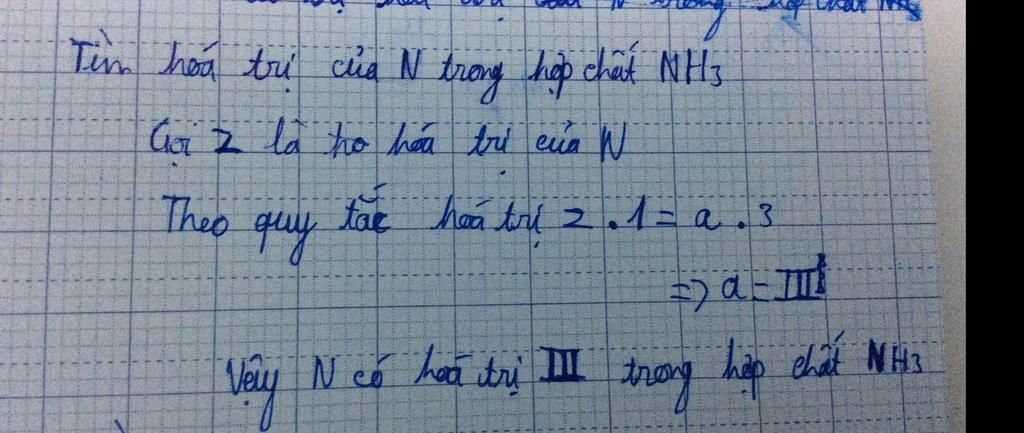 Tìm hoá trị của N trong hợp chất NH3
Gọi 2 là hoá trị của N
Theo quy tắc hoá trị 2 . 1 = a . 3
=> a = III
Vậy N có hoá trị III trong hợp chất NH3